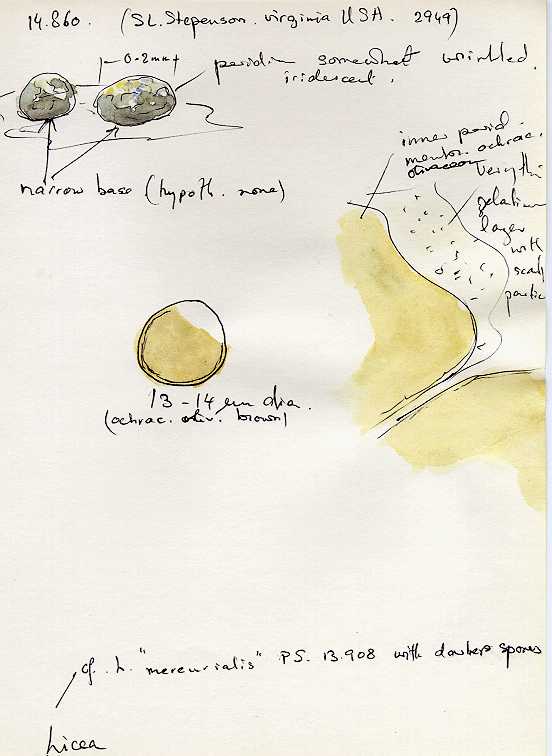 14.860. (S.L. Stepenson. virginia USA. 2949)
0.2mm
peridium somewhat wrinkled.
iridescent.
narrow base (hypoth. none)
inner perid.
membr. ochrac.
olivaceous very thi
gelatinous
layer
with
scaly
partic
13-14 µm dia.
(ochrac. oliv. brown)
cf. L. "mercurialis" P.S. 13.908 with darker spores
Licea